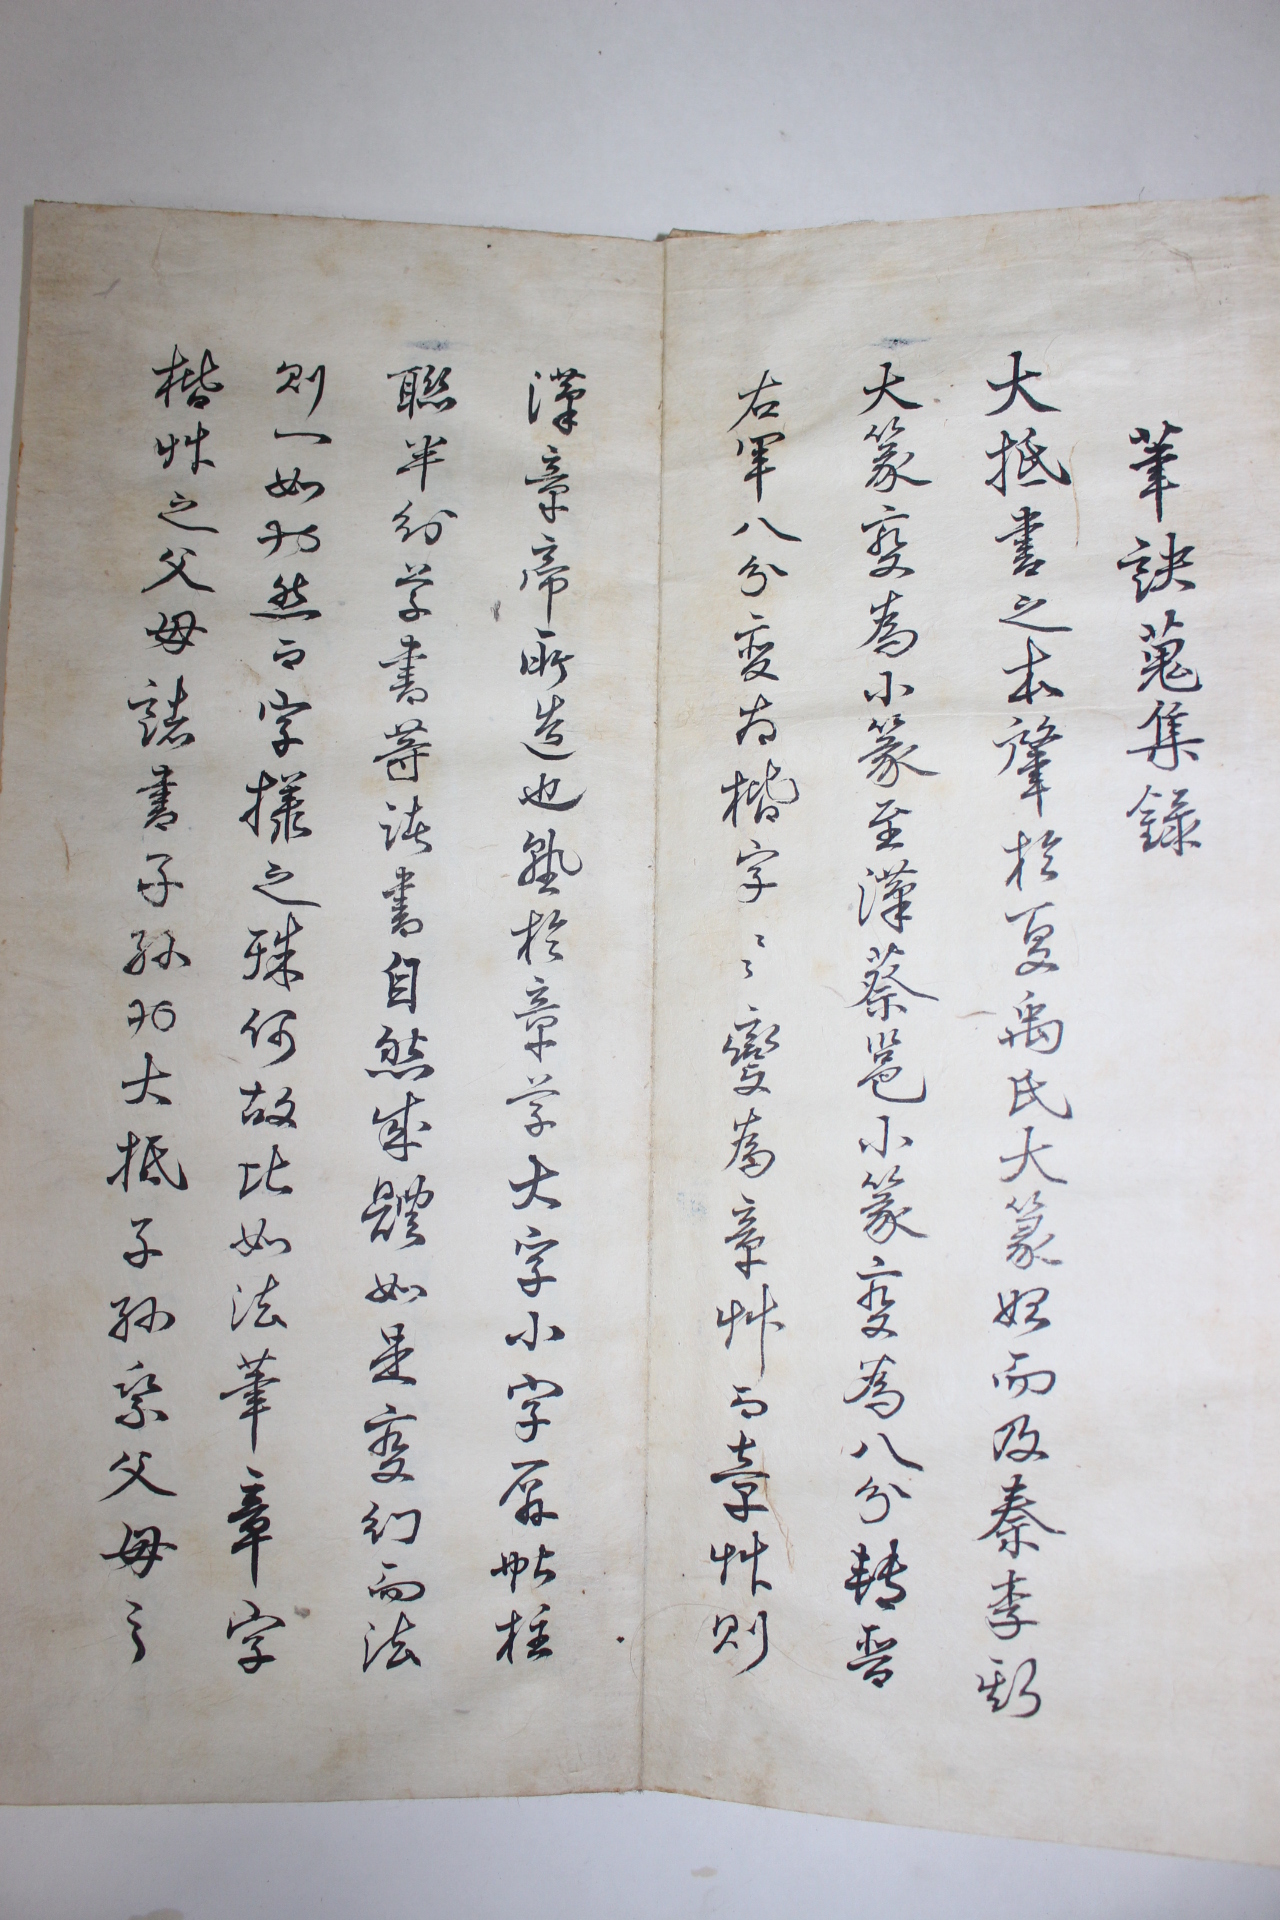 筆訣蒐集錄
大抵書之本肇於夏禹氏大篆始而及秦李斯
大篆變為小篆至漢蔡邕小篆變為八分轉晉
右軍八分變為楷字〻〻變為章艸而章艸則
漢章帝所造也熟於章草大字小字屏帖柱
聯半行草書等諸書自然成體如是變幻而法
則一如 然而字樣之殊何故比如法筆章字
楷艸之父母諸書子孫 大抵子孫 父母